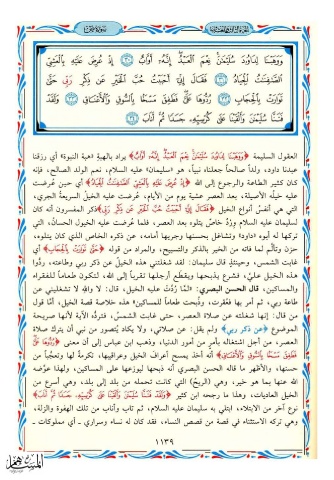 وَوَهَبْنَا لِدَاوُدَ سُلَيْمَٰنَ نِعْمَ ٱلْعَبْدُ إِنَّهُۥٓ أَوَّابٌ ٣٠ إِذْ عُرِضَ عَلَيْهِ بِٱلْعَشِيِّ
ٱلصَّٰفِنَٰتُ ٱلْجِيَادُ ٣١ فَقَالَ إِنِّيٓ أَحْبَبْتُ حُبَّ ٱلْخَيْرِ عَن ذِكْرِ رَبِّي حَتَّىٰ
تَوَارَتْ بِٱلْحِجَابِ ٣٢ رُدُّوهَا عَلَيَّ فَطَفِقَ مَسْحًۢا بِٱلسُّوقِ وَٱلْأَعْنَاقِ ٣٣ وَلَقَدْ
فَتَنَّا سُلَيْمَٰنَ وَأَلْقَيْنَا عَلَىٰ كُرْسِيِّهِۦ جَسَدًا ثُمَّ أَنَابَ ٣٤
العقول السليمة ﴿وَوَهَبْنَا لِدَاوُدَ سُلَيْمَٰنَ نِعْمَ ٱلْعَبْدُ إِنَّهُۥٓ أَوَّابٌ﴾ يراد بالهبة (هبة النبوة) أي رزقنا
عبدنا داود، ولداً صالحاً جعلناه نبياً، هو «سليمان» عليه السلام، نعم الولد الصالح، فإنه
كان كثير الطاعة والرجوع إلى الله ﴿إِذْ عُرِضَ عَلَيْهِ بِٱلْعَشِيِّ ٱلصَّٰفِنَٰتُ ٱلْجِيَادُ﴾ أي حين عُرضت
عليه خيله الأصيلة، بعد العصر عشية يوم من الأيام، عُرضت عليه الخيل السريعة الجري،
التي هي أنفس أنواع الخيل ﴿فَقَالَ إِنِّيٓ أَحْبَبْتُ حُبَّ ٱلْخَيْرِ عَن ذِكْرِ رَبِّي﴾ ذكر المفسرون أنه كان
لسليمان عليه السلام وِردٌ خاصٌ يتلوه بعد العصر، فلما عُرضت عليه الخيول الحسان، التي
تركها له أبوه «داود» وتشاغل بحسنها وجريها أمامه، عن ذكره الخاص الذي كان يتلوه،
حزن وتألَّم لما فاته من الخير بالذكر والتسبيح، والمراد من قوله ﴿حَتَّىٰ تَوَارَتْ بِٱلْحِجَابِ﴾ أي
غابت الشمس، وحينئذٍ قال سليمان: لقد شغلتني هذه الخيل عن ذكر ربي وطاعته، ردُّوا
هذه الخيل عليَّ، فشرع يذبحها ويقطع أرجلها تقرباً إلى الله، لتكون طعاماً للفقراء
والمساكين، قال الحسن البصري: «لمَّا رُدَّت عليه الخيل، قال: لا والله لا تشغليني عن
طاعة ربي، ثم أمر بها فعُقرت، وذُبحت طعاماً للمساكين» هذه خلاصة قصة الخيل، أمَّا قول
من قال: إنها شغلته عن صلاة العصر، حتى غابت الشمس، فتردُّه الآية لأنها صريحة
الموضوع ﴿عَن ذِكْرِ رَبِّي﴾ ولم يقل: عن صلاتي، ولا يكاد يُتصور من نبي أن يترك صلاة
العصر، من أجل اشتغاله بأمرٍ من أمور الدنيا، وذهب ابن عباس إلى أن معنى ﴿رُدُّوهَا عَلَيَّ
فَطَفِقَ مَسْحًۢا بِٱلسُّوقِ وَٱلْأَعْنَاقِ﴾ أنه أخذ يمسح أعراف الخيل وعراقيبها، تكرمةً لها وتعجباً من
حسنها، والأظهر ما قاله الحسن البصري أنه ذبحها ليوزعها على المساكين، ولهذا عوَّضه
الله عنها بما هو خير، وهي (الريح) التي كانت تحمله من بلد إلى بلد، وهي أسرع من
الخيل العاديات، وهذا ما رجحه ابن كثير ﴿وَلَقَدْ فَتَنَّا سُلَيْمَٰنَ وَأَلْقَيْنَا عَلَىٰ كُرْسِيِّهِۦ جَسَدًا ثُمَّ أَنَابَ﴾ هذا
نوع آخر من الابتلاء، ابتلي به سليمان عليه السلام، ثم تاب وأناب من تلك الهفوة والزلة،
وهي تركه الاستثناء في قصة من قصص النساء، فقد كان له نساء وسراري - أي مملوكات -
١١٣٩